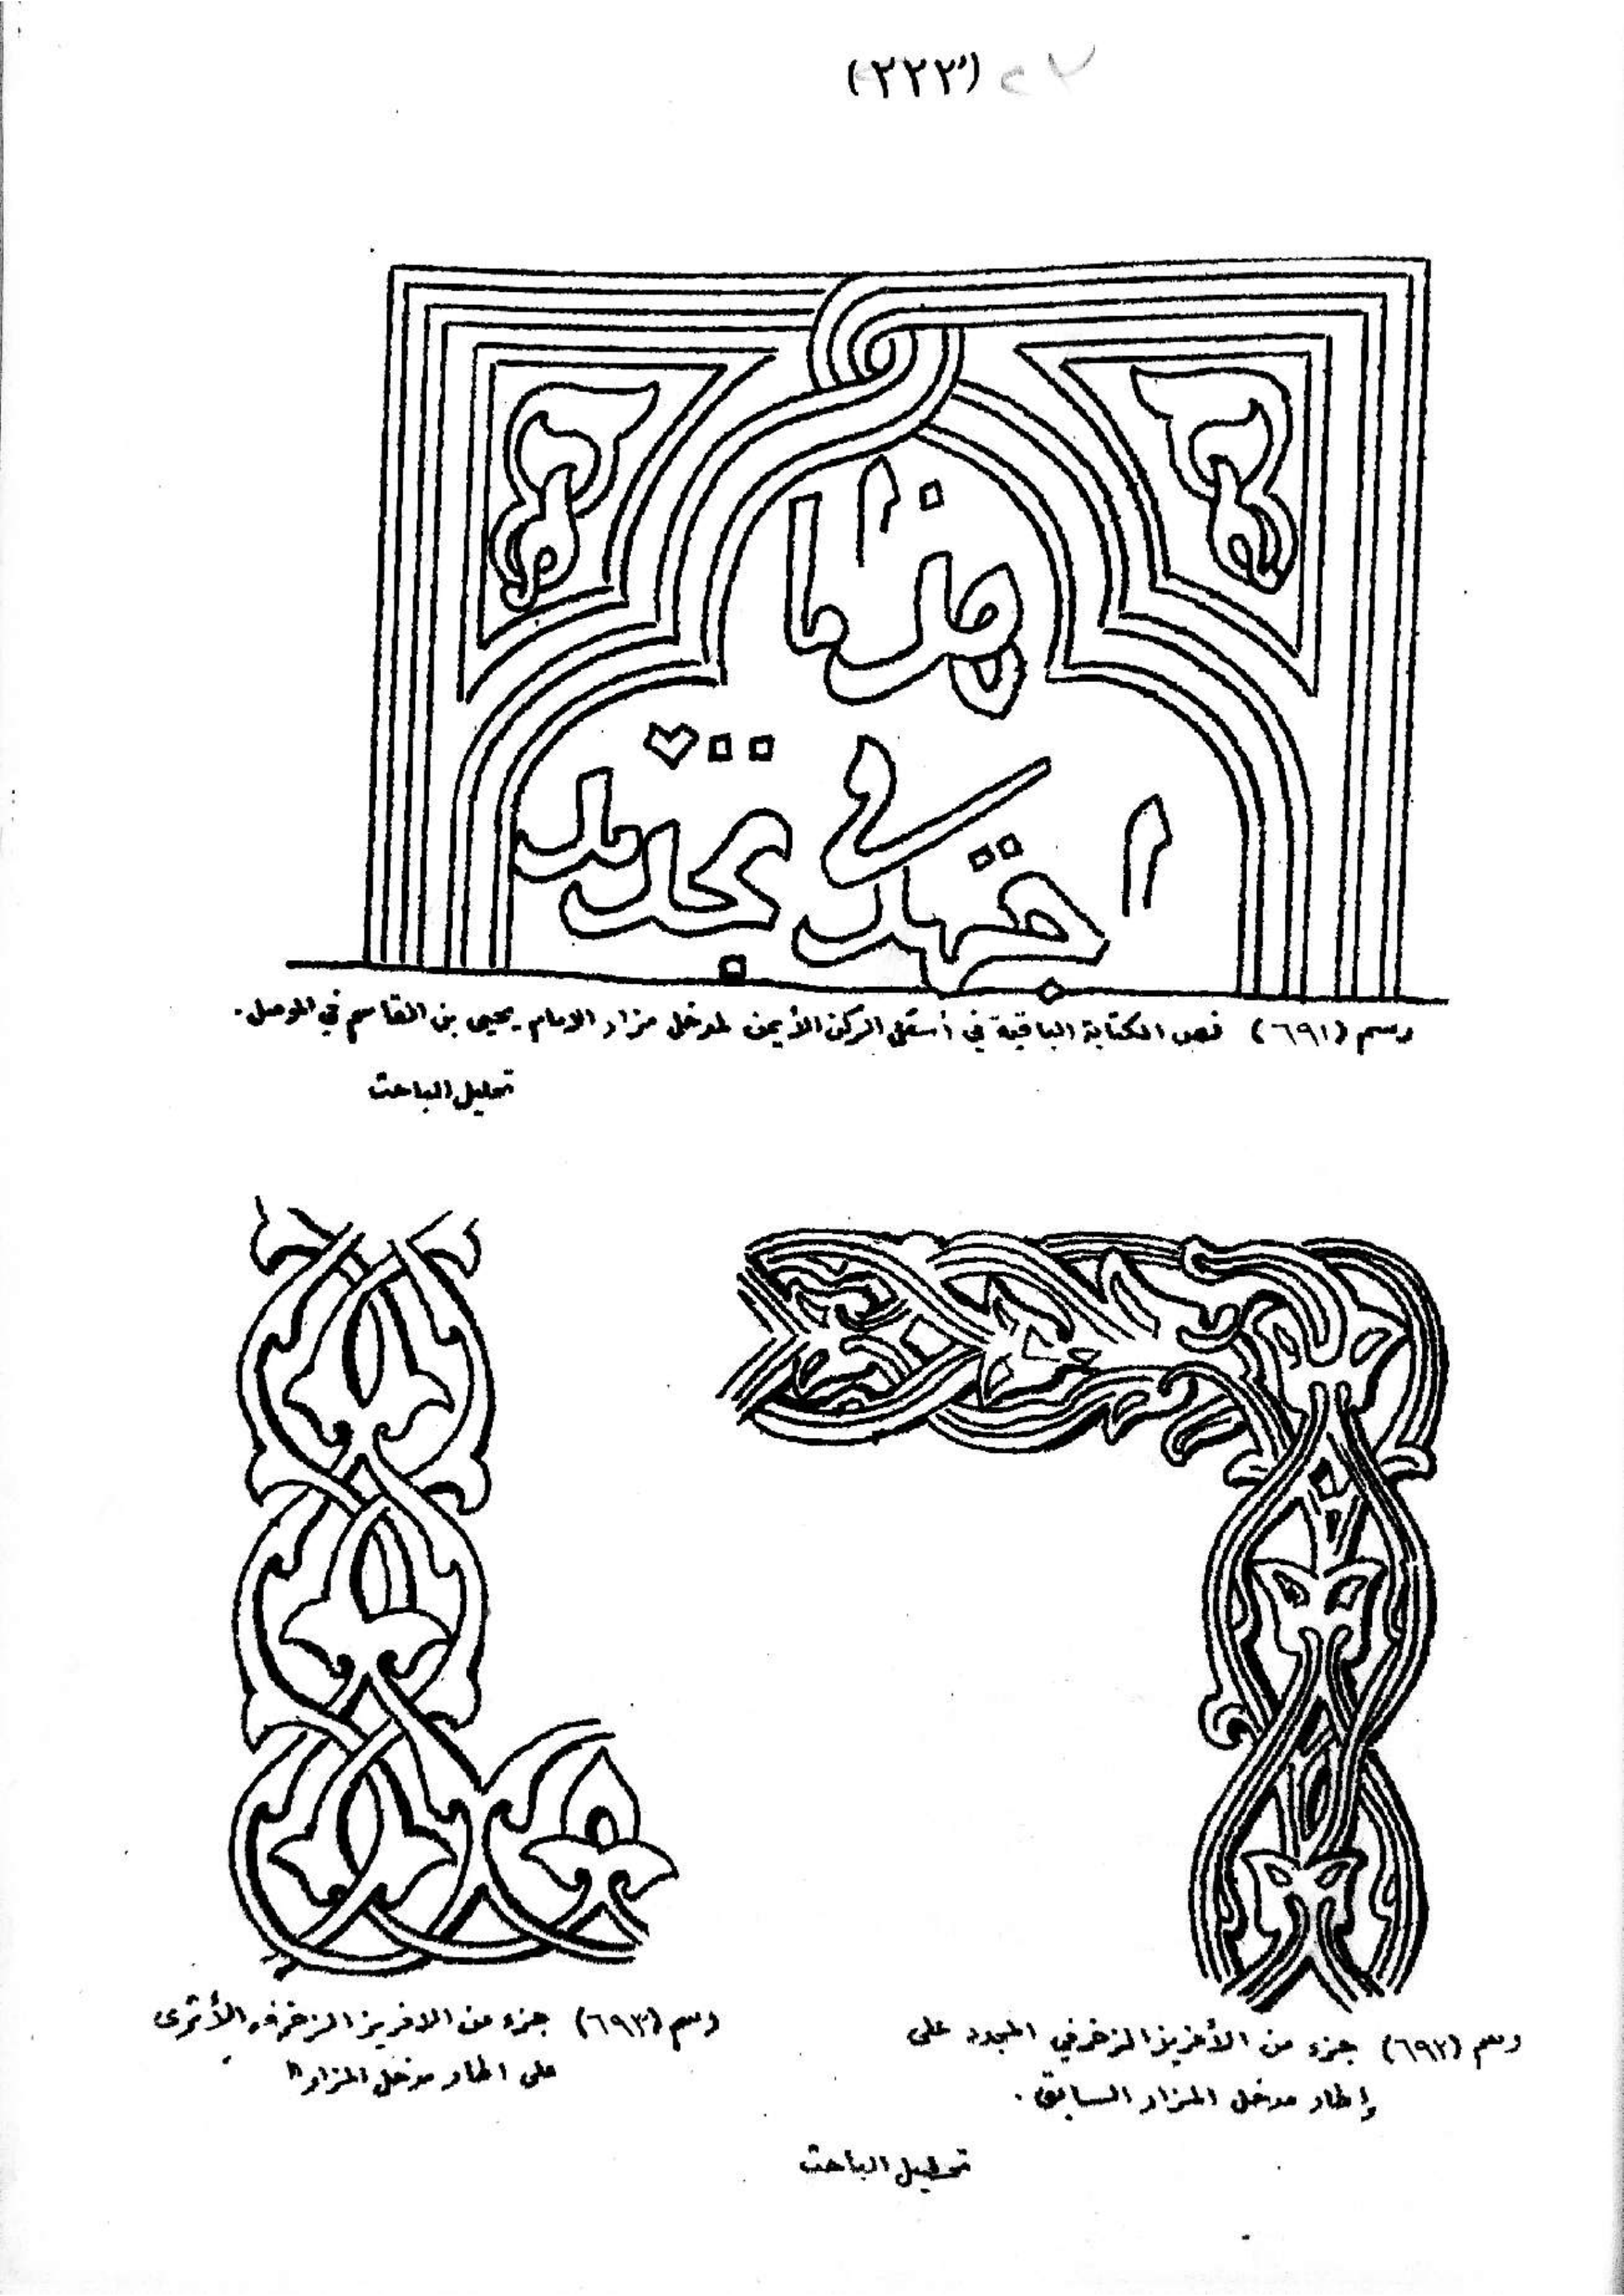 (٢٢٣)
هذا ما
اجتهد في تجديد
رسم (٦٩١) نص الكتابة الباقية في أسفل الركن الأيمن لمدخل مزار الامام يحيى بن القاسم في الموصل .
تحليل الباحث
رسم (٦٩٢) جزء من الأفريز الزخرفي المجدد على
إطار مدخل المزار السابق .
رسم (٦٩٣) جزء من الافريز الزخرفي الأثري
على اطار مدخل المزار
تحليل الباحث